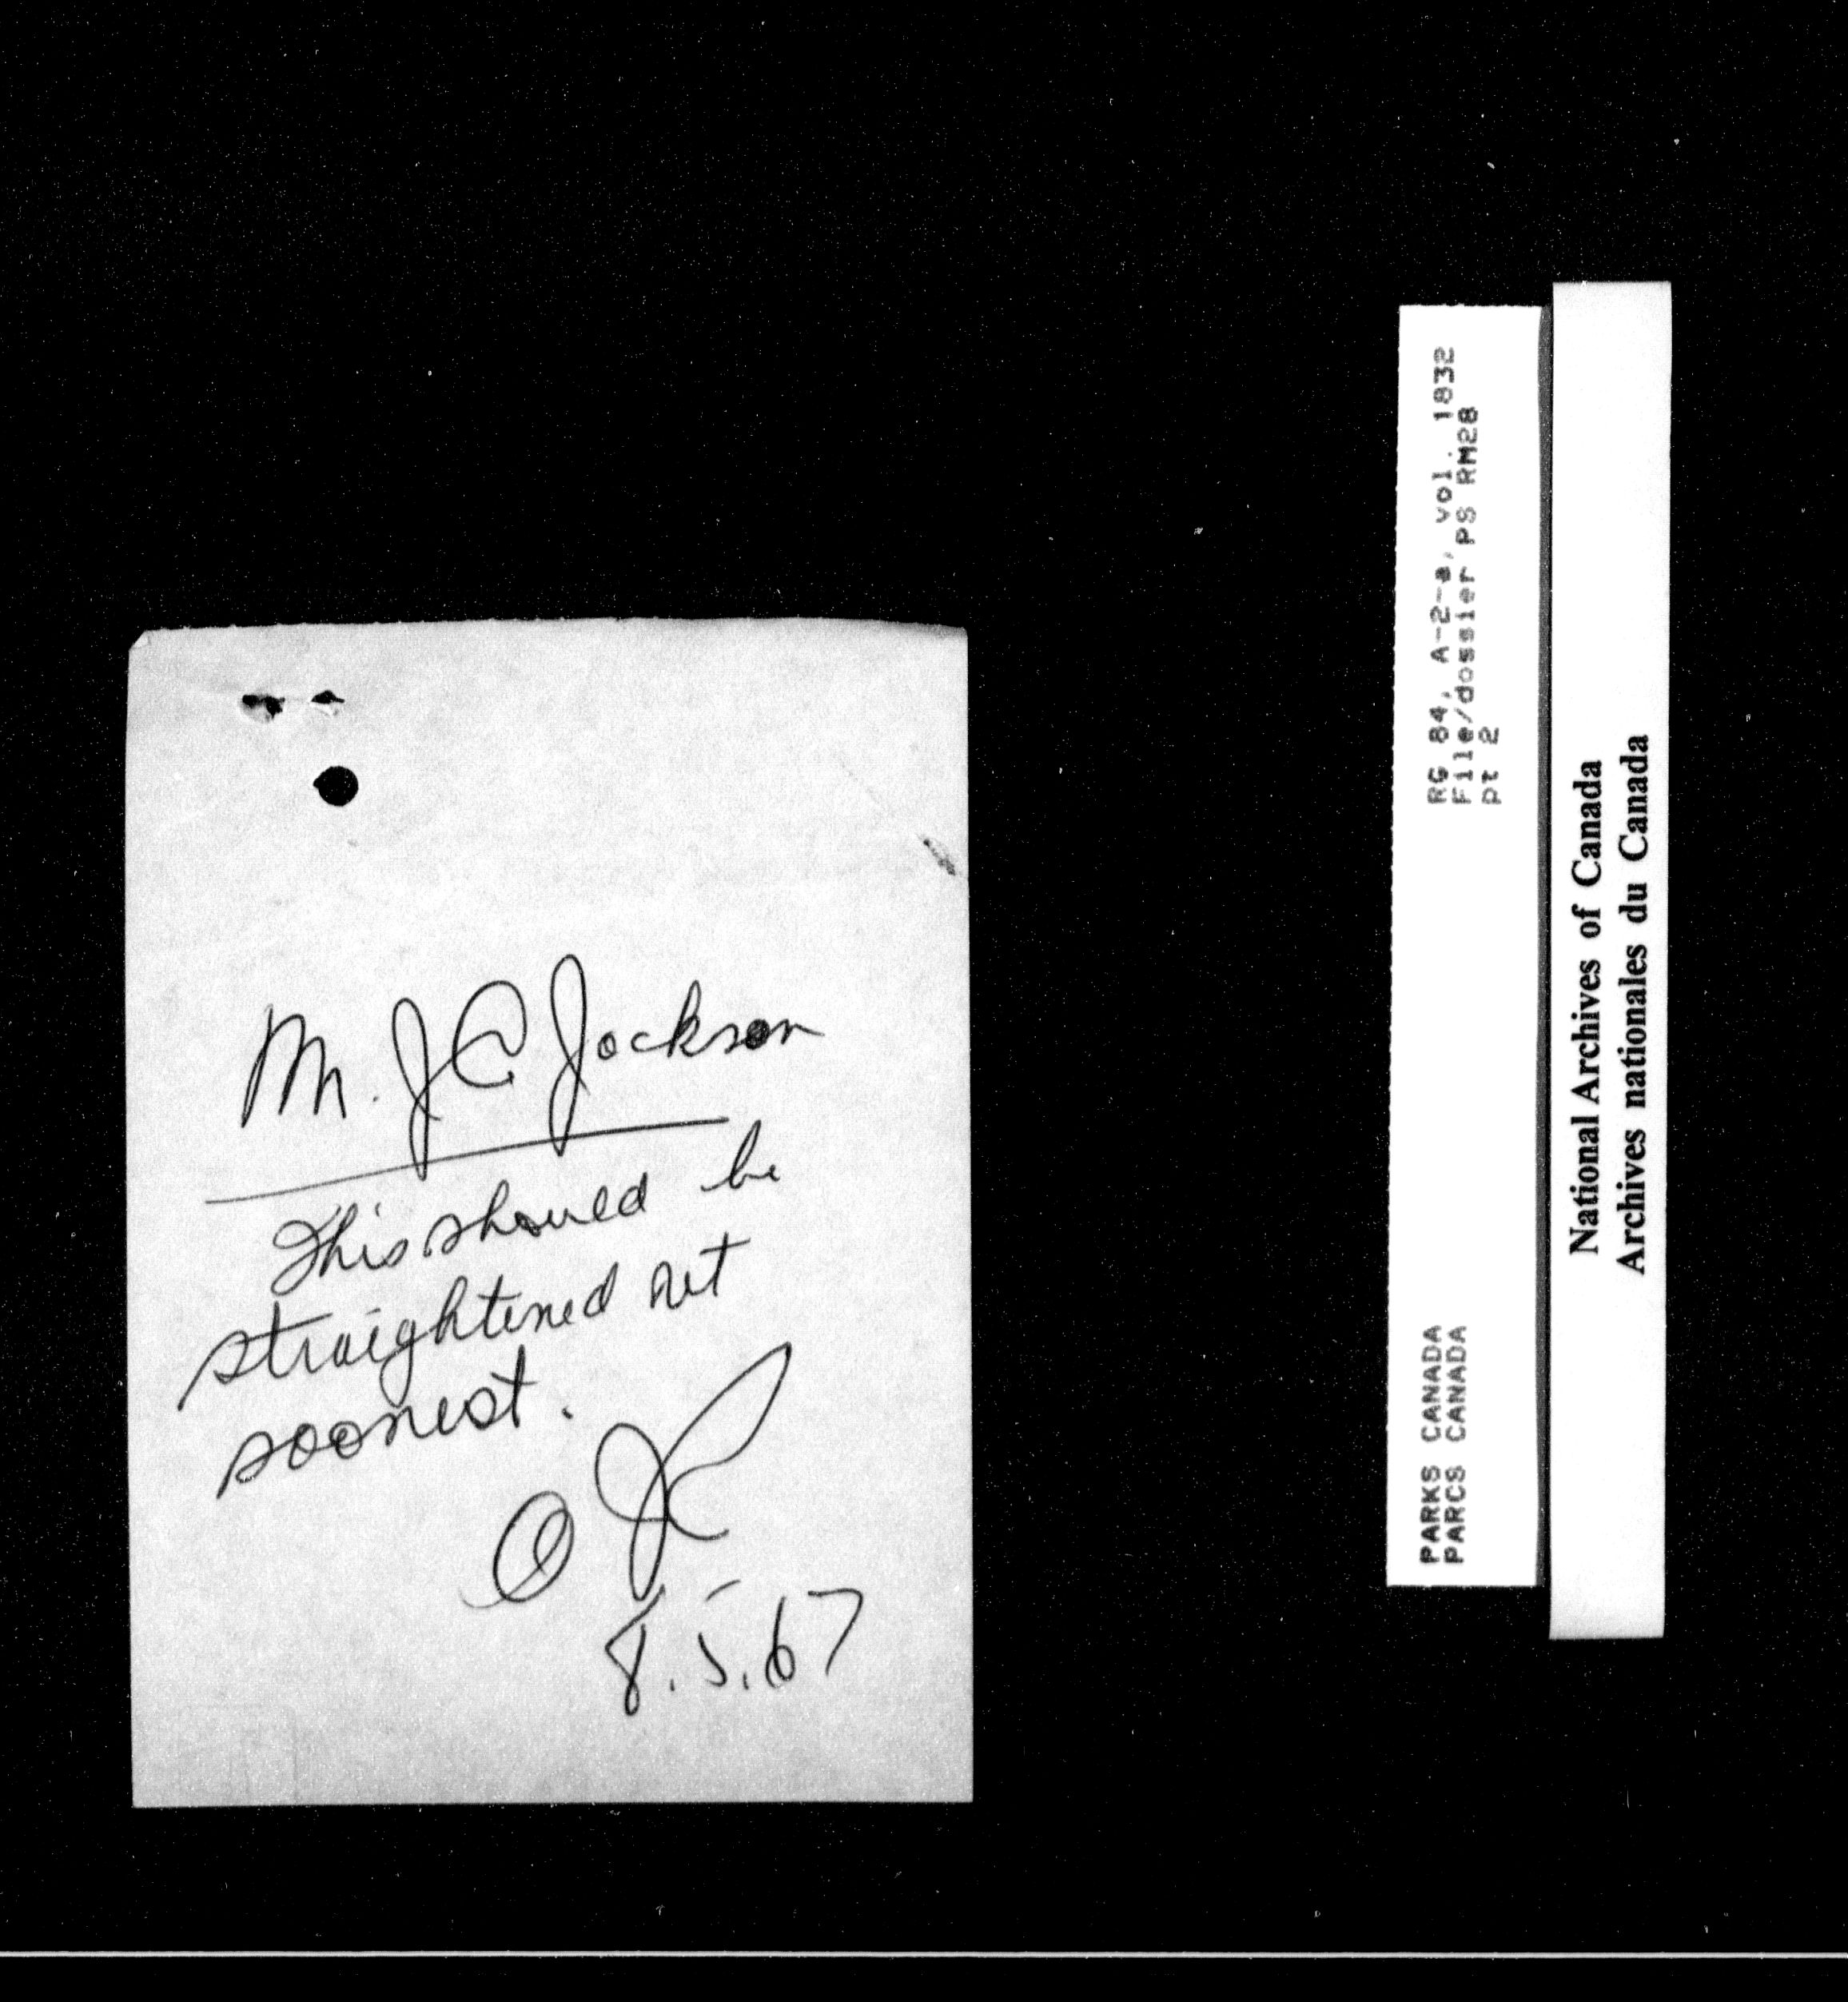 Mr. J C Jackson
This should be
straightened out
soonest.
8.5.67
RG 84, A-2-a, vol. 1832
File/dossier PS RM28
pt 2
PARKS CANADA
PARCS CANADA
National Archives of Canada
Archives nationales du Canada